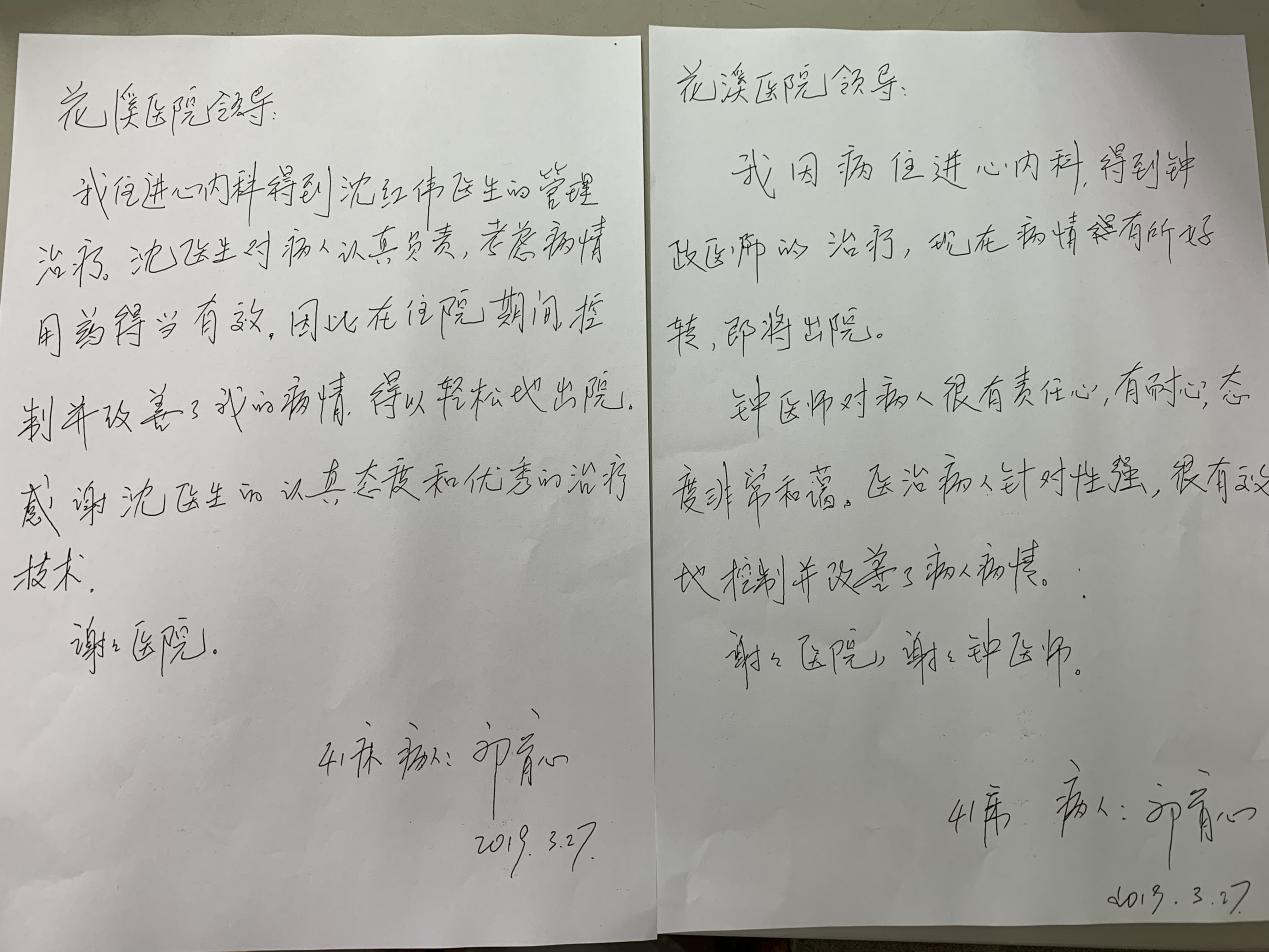 花溪医院领导:
我住进心内科得到沈红伟医生的管理
治疗。沈医生对病人认真负责,考虑病情
用药得当有效。因此在住院期间控
制并改善了我的病情,得以轻松地出院。
感谢沈医生的认真态度和优秀的治疗
技术。
谢々医院。
41床 病人: 育心
2019.3.27.
花溪医院领导:
我因病住进心内科,得到钟
政医师的治疗,现在病情有所好
转,即将出院。
钟医师对病人很有责任心,有耐心,态
度非常和蔼。医治病人针对性强,很有效
地控制并改善了病人病情。
谢々医院,谢々钟医师。
41床 病人: 育心
2019.3.27